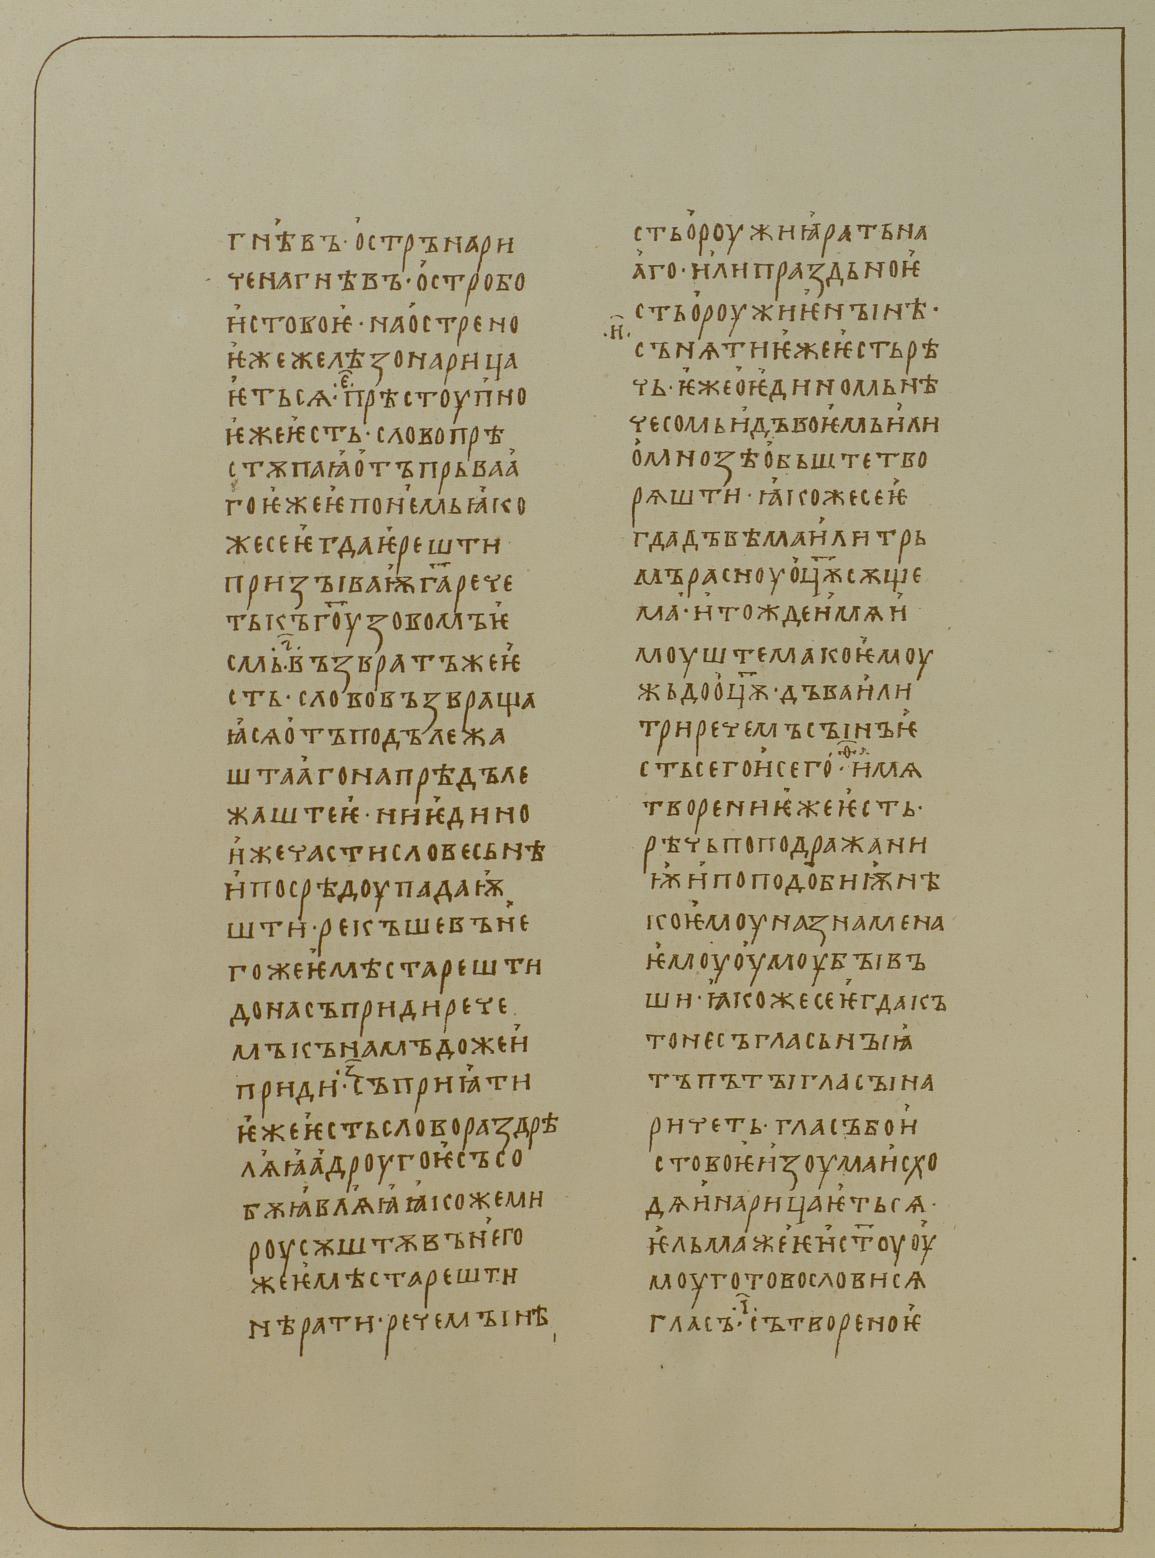 гнѣвъ· острънари
ченагнѣвъ· остробо
истовоѥ· наострено
ѥжежелѣзонарица
ѥтьсѧ· ·е҃· прѣстоупно
ѥжеѥсть· словопрѣ
стѫпаꙗотъпрьваа
гоѥжеѥпонемьꙗко
жесеѥгдаѥрешти
призъіваѭг҃арече
тъікъг҃оузовомъѥ
смь ·г҃· възвратъжеѥ
сть· слововъзвраща
ꙗсѧотъподълежа
штаагонапрѣдъле
жаштеѥ· ниѥдино
ижечастисловесьнѣ
ипосрѣдоупадаѭ
шти· рекъшевъне
гожеѥмѣстарешти
донасъпридирече
мъікънамъдожеи
приди ·з҃· съприꙗти
ѥжеѥстьсловораздрѣ
лѧꙗадроугоѥсъсо
бѫꙗвлѧꙗꙗкожеми
роусѫштѫвънего
жеѥмѣстарешти
нѣрати· речемъінѣ
стьороужиꙗратьна
аго· илипраздьноѥ
стьороужиѥнъінѣ·
·и҃·
сънѧтиѥжеѥстьрѣ
чь· ѥжеоѥдиномьнѣ
чесомьидъвоѥмьили
омнозѣобьштетво
рѧшти· ꙗкожесеѥ
гдадъвѣмаилитрь
мърасноуоц҃ѫсѫще
ма· итождеимѧи
моуштемакоѥмоу
жьдооц҃ѫ· дъваили
триречемъсъінъѥ
стьсегоисего ·ѳ҃· имѧ
творениѥжеѥсть·
рѣчьпоподражани
ѭипоподобниѭнѣ
коѥмоуназнамена
ѥмоуоумоубъівъ
ши· ꙗкожесеѥгдакъ
тонесъгласьнъіꙗ
тъпътъігласъіна
ричеть· гласъбои
стовоѥизоумаисхо
дѧинарицаѥтьсѧ·
ѥльмажеѥист҃оуоу
моуготовословисѧ
гласъ ·і҃· сътвореноѥ